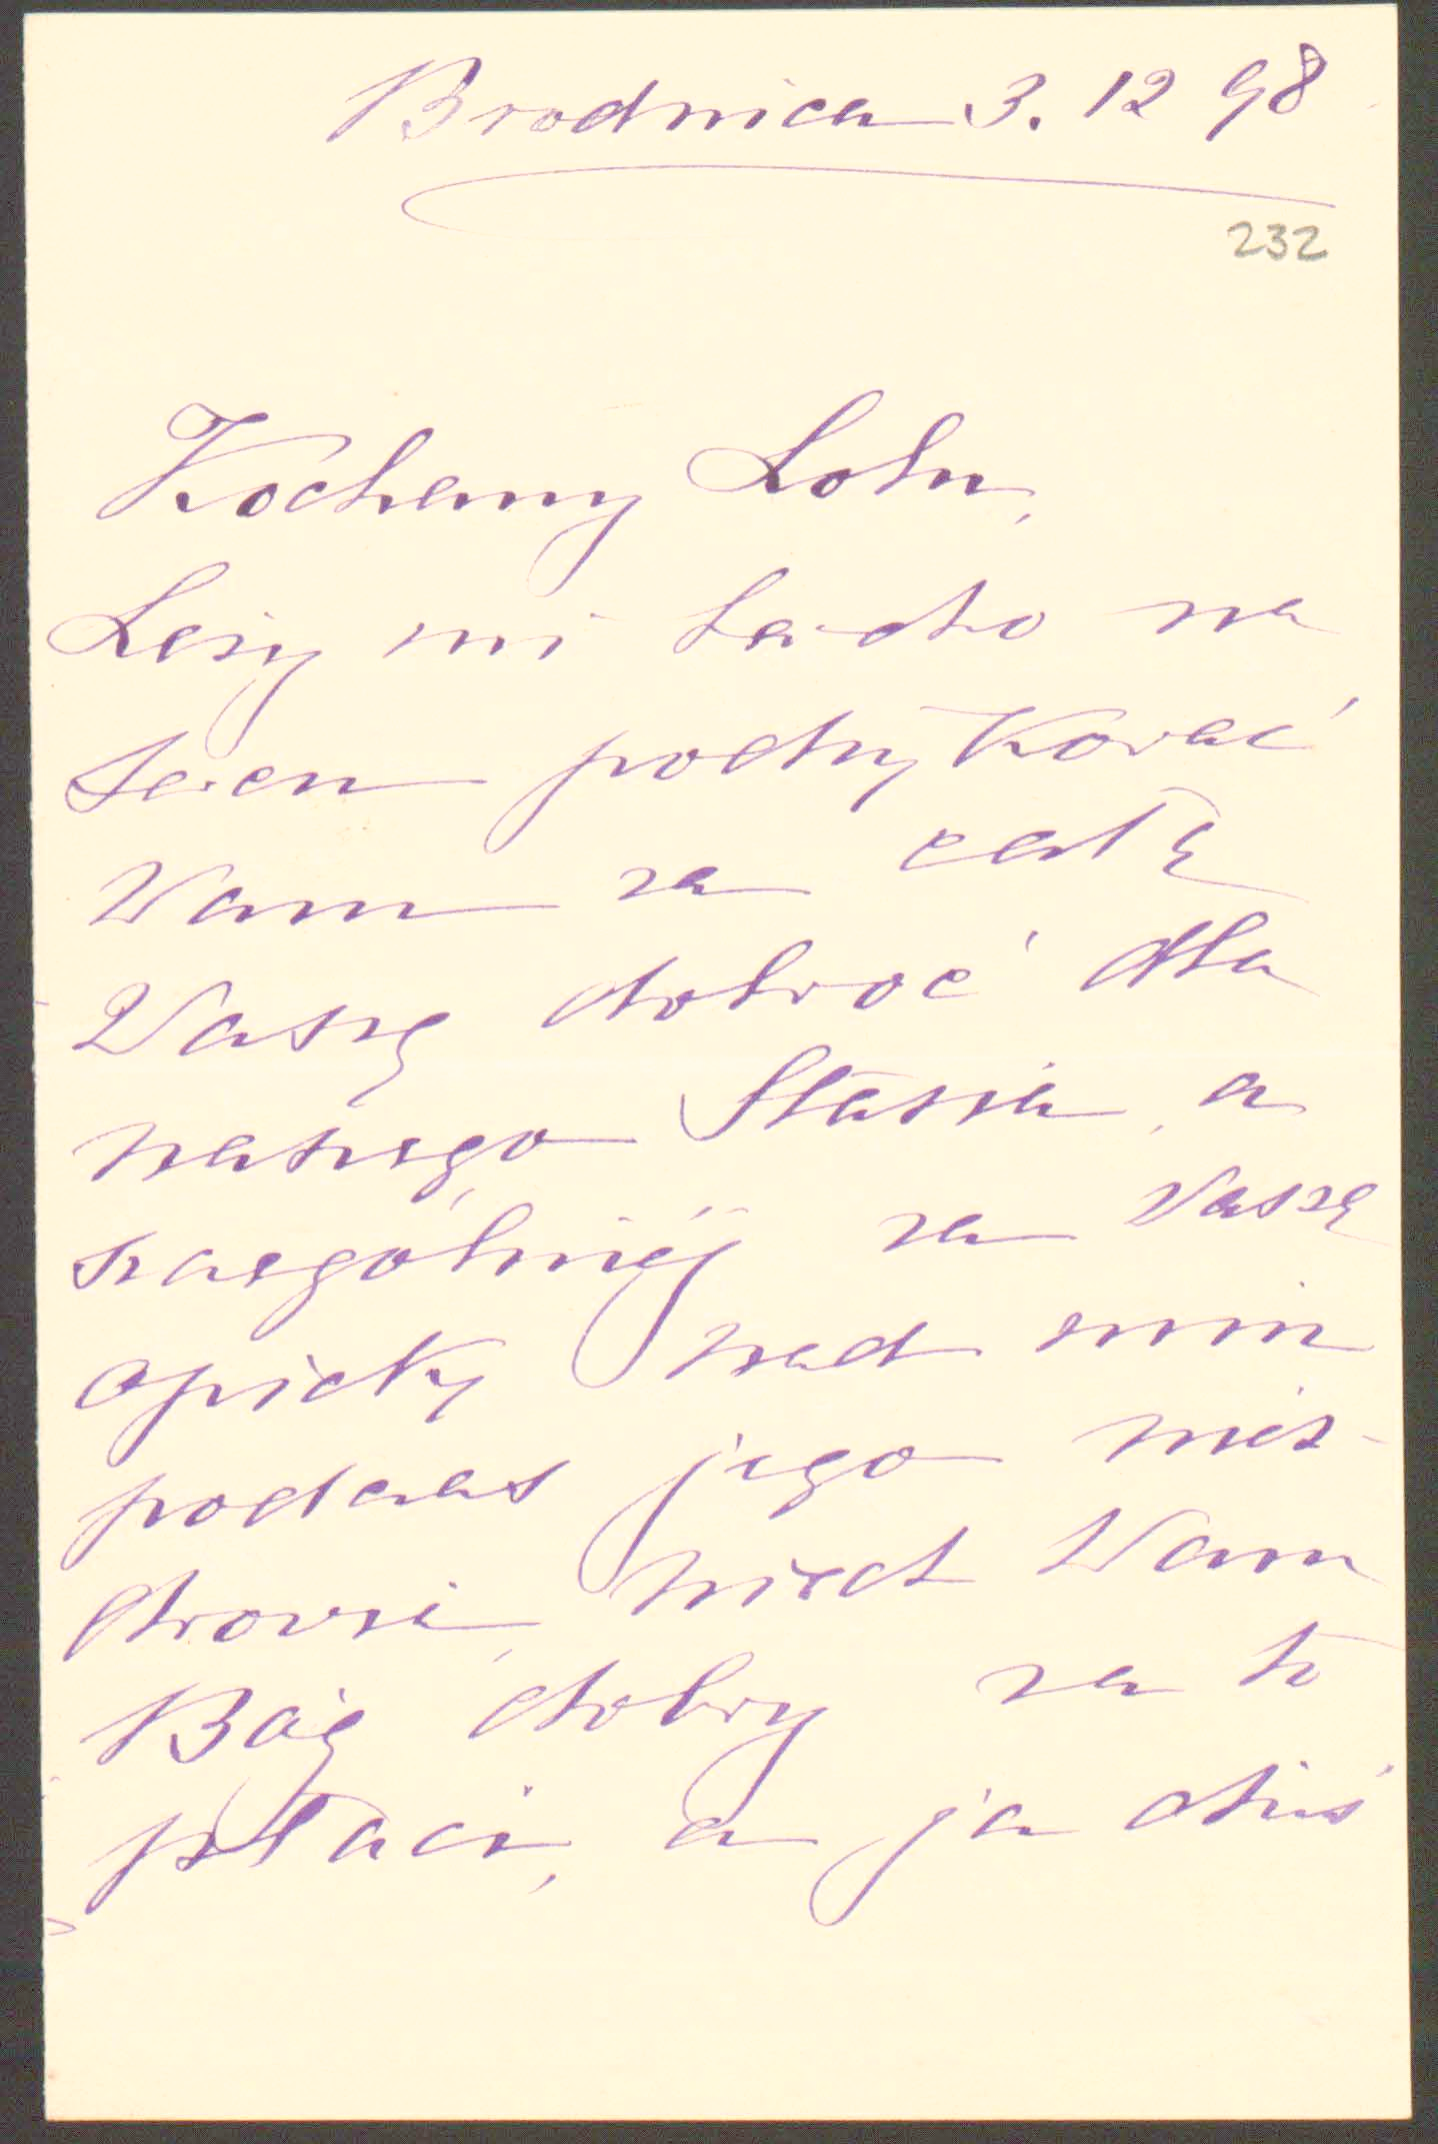 Brodnica 3. 12 98
232
Kochany Lolu,
Leży mi bardzo na
sercu podziękować
Wam za całą
Waszą dobroć dla
naszego Stasia, a
szczególniéj za Waszą
opiekę nad nim
podczas jego niez-
drowia, niech Wam
Bóg dobry za to
płaci, a ja dziś